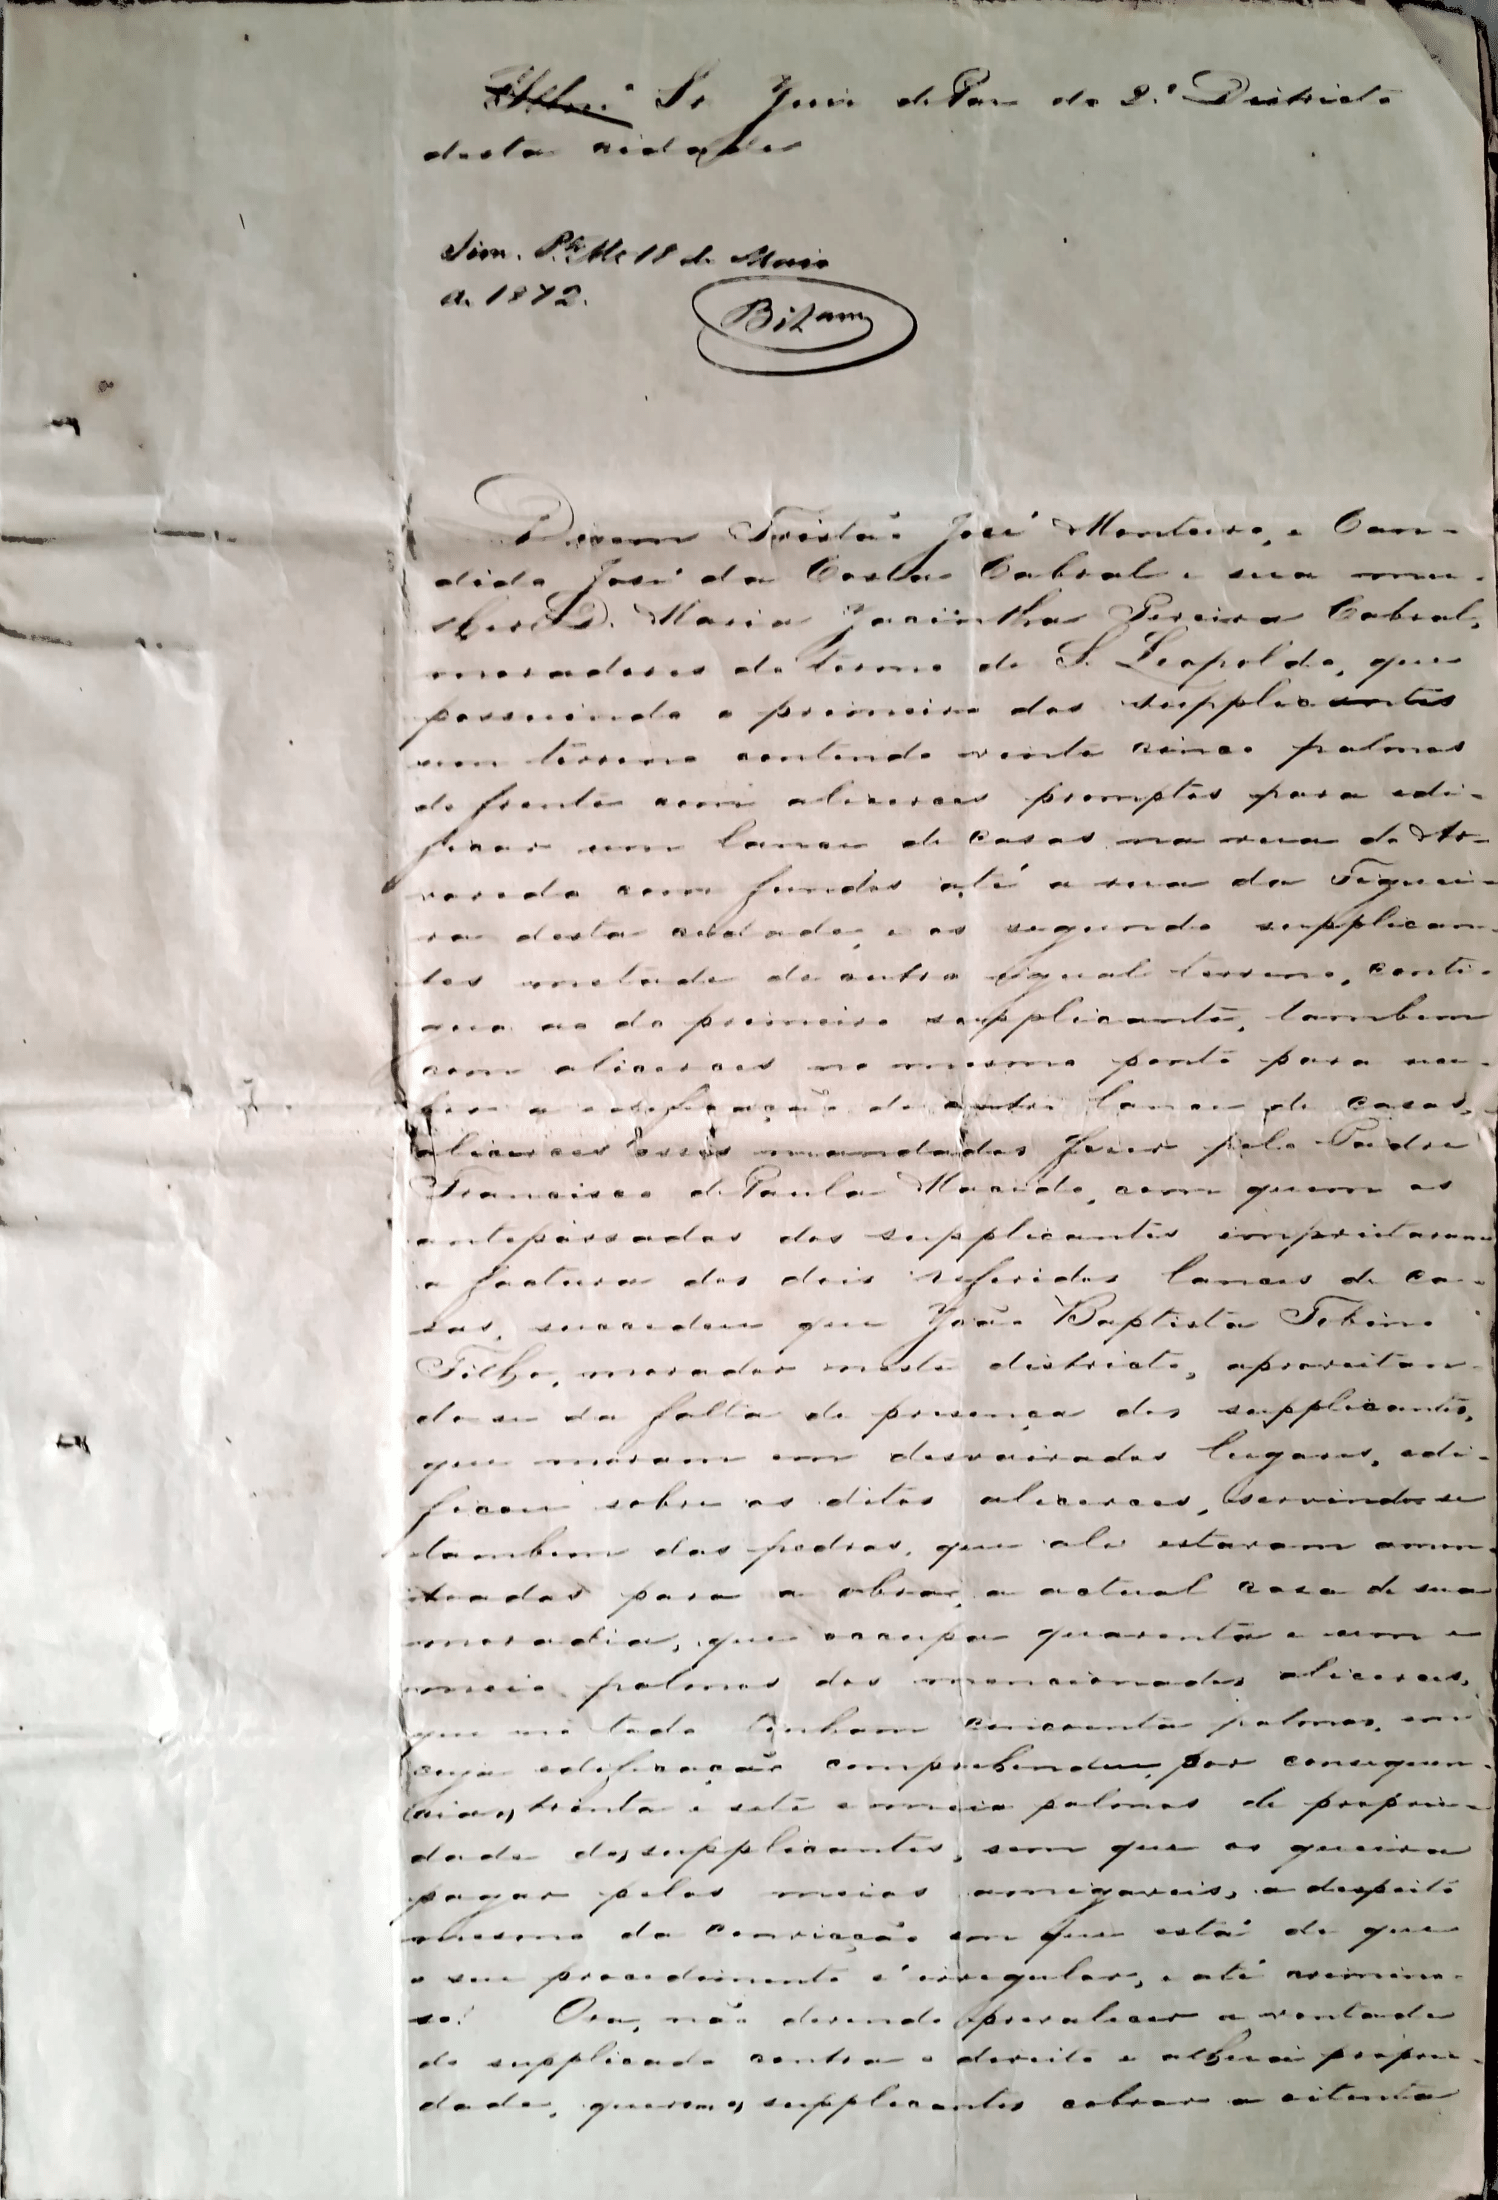 Illmo. Sr. Juiz de Paz do 2.º Districto
desta cidade
Sim. P.to Al.e 18 de Maio
de 1872.
Dizem Tristão José Monteiro, e Can-
dido José da Costa Cabral e sua mu-
lher D. Maria Jacintha Pereira Cabral,
moradores do termo de S. Leopoldo, que
possuindo o primeiro dos supplicantes
um terreno contendo vente cinco palmos
de frente com alicerces promptos para edi-
ficar um lance de casas na rua do Ar-
voredo com fundos até a rua da Figuei-
ra desta cidade, e os segundo supplican-
tes metade de outro igual terreno, conti-
guo ao do primeiro supplicante, tambem
com alicerces no mesmo ponto para
a edificação de outro lance de casas,
alicerces esses mandados fazer pelo Padre
Francisco de Paula Macedo, com quem os
antepassados dos supplicantes impreitaram
a factura dos dois referidos lances de ca-
sas, succedeu que João Baptista
Filho, morador neste districto, aproveitan-
do se da falta de presença dos supplicantes,
que moram em desvairados lugares, edi-
ficou sobre os ditos alicerces, servindo se
tambem das pedras, que ali estavam amon-
toadas para a obra, a actual casa de sua
moradia, que occupa quarenta e um e
meio palmos dos mencionados alicerces,
que no todo tinham cincoenta palmos, em
cuja edificação comprehendeu, por consequen-
cia, trinta e sete e meio palmos de proprie-
dade dos supplicantes, sem que os queira
pagar pelos meios amigaveis, a despeito
mesmo da convicção em que está de que
o seu procedimento é irregular, e até crimino-
so! Ora, não devendo prevalecer a vontade
do supplicado contra o direito e alheia proprie-
dade, querem os supplicantes cobrar a oitenta